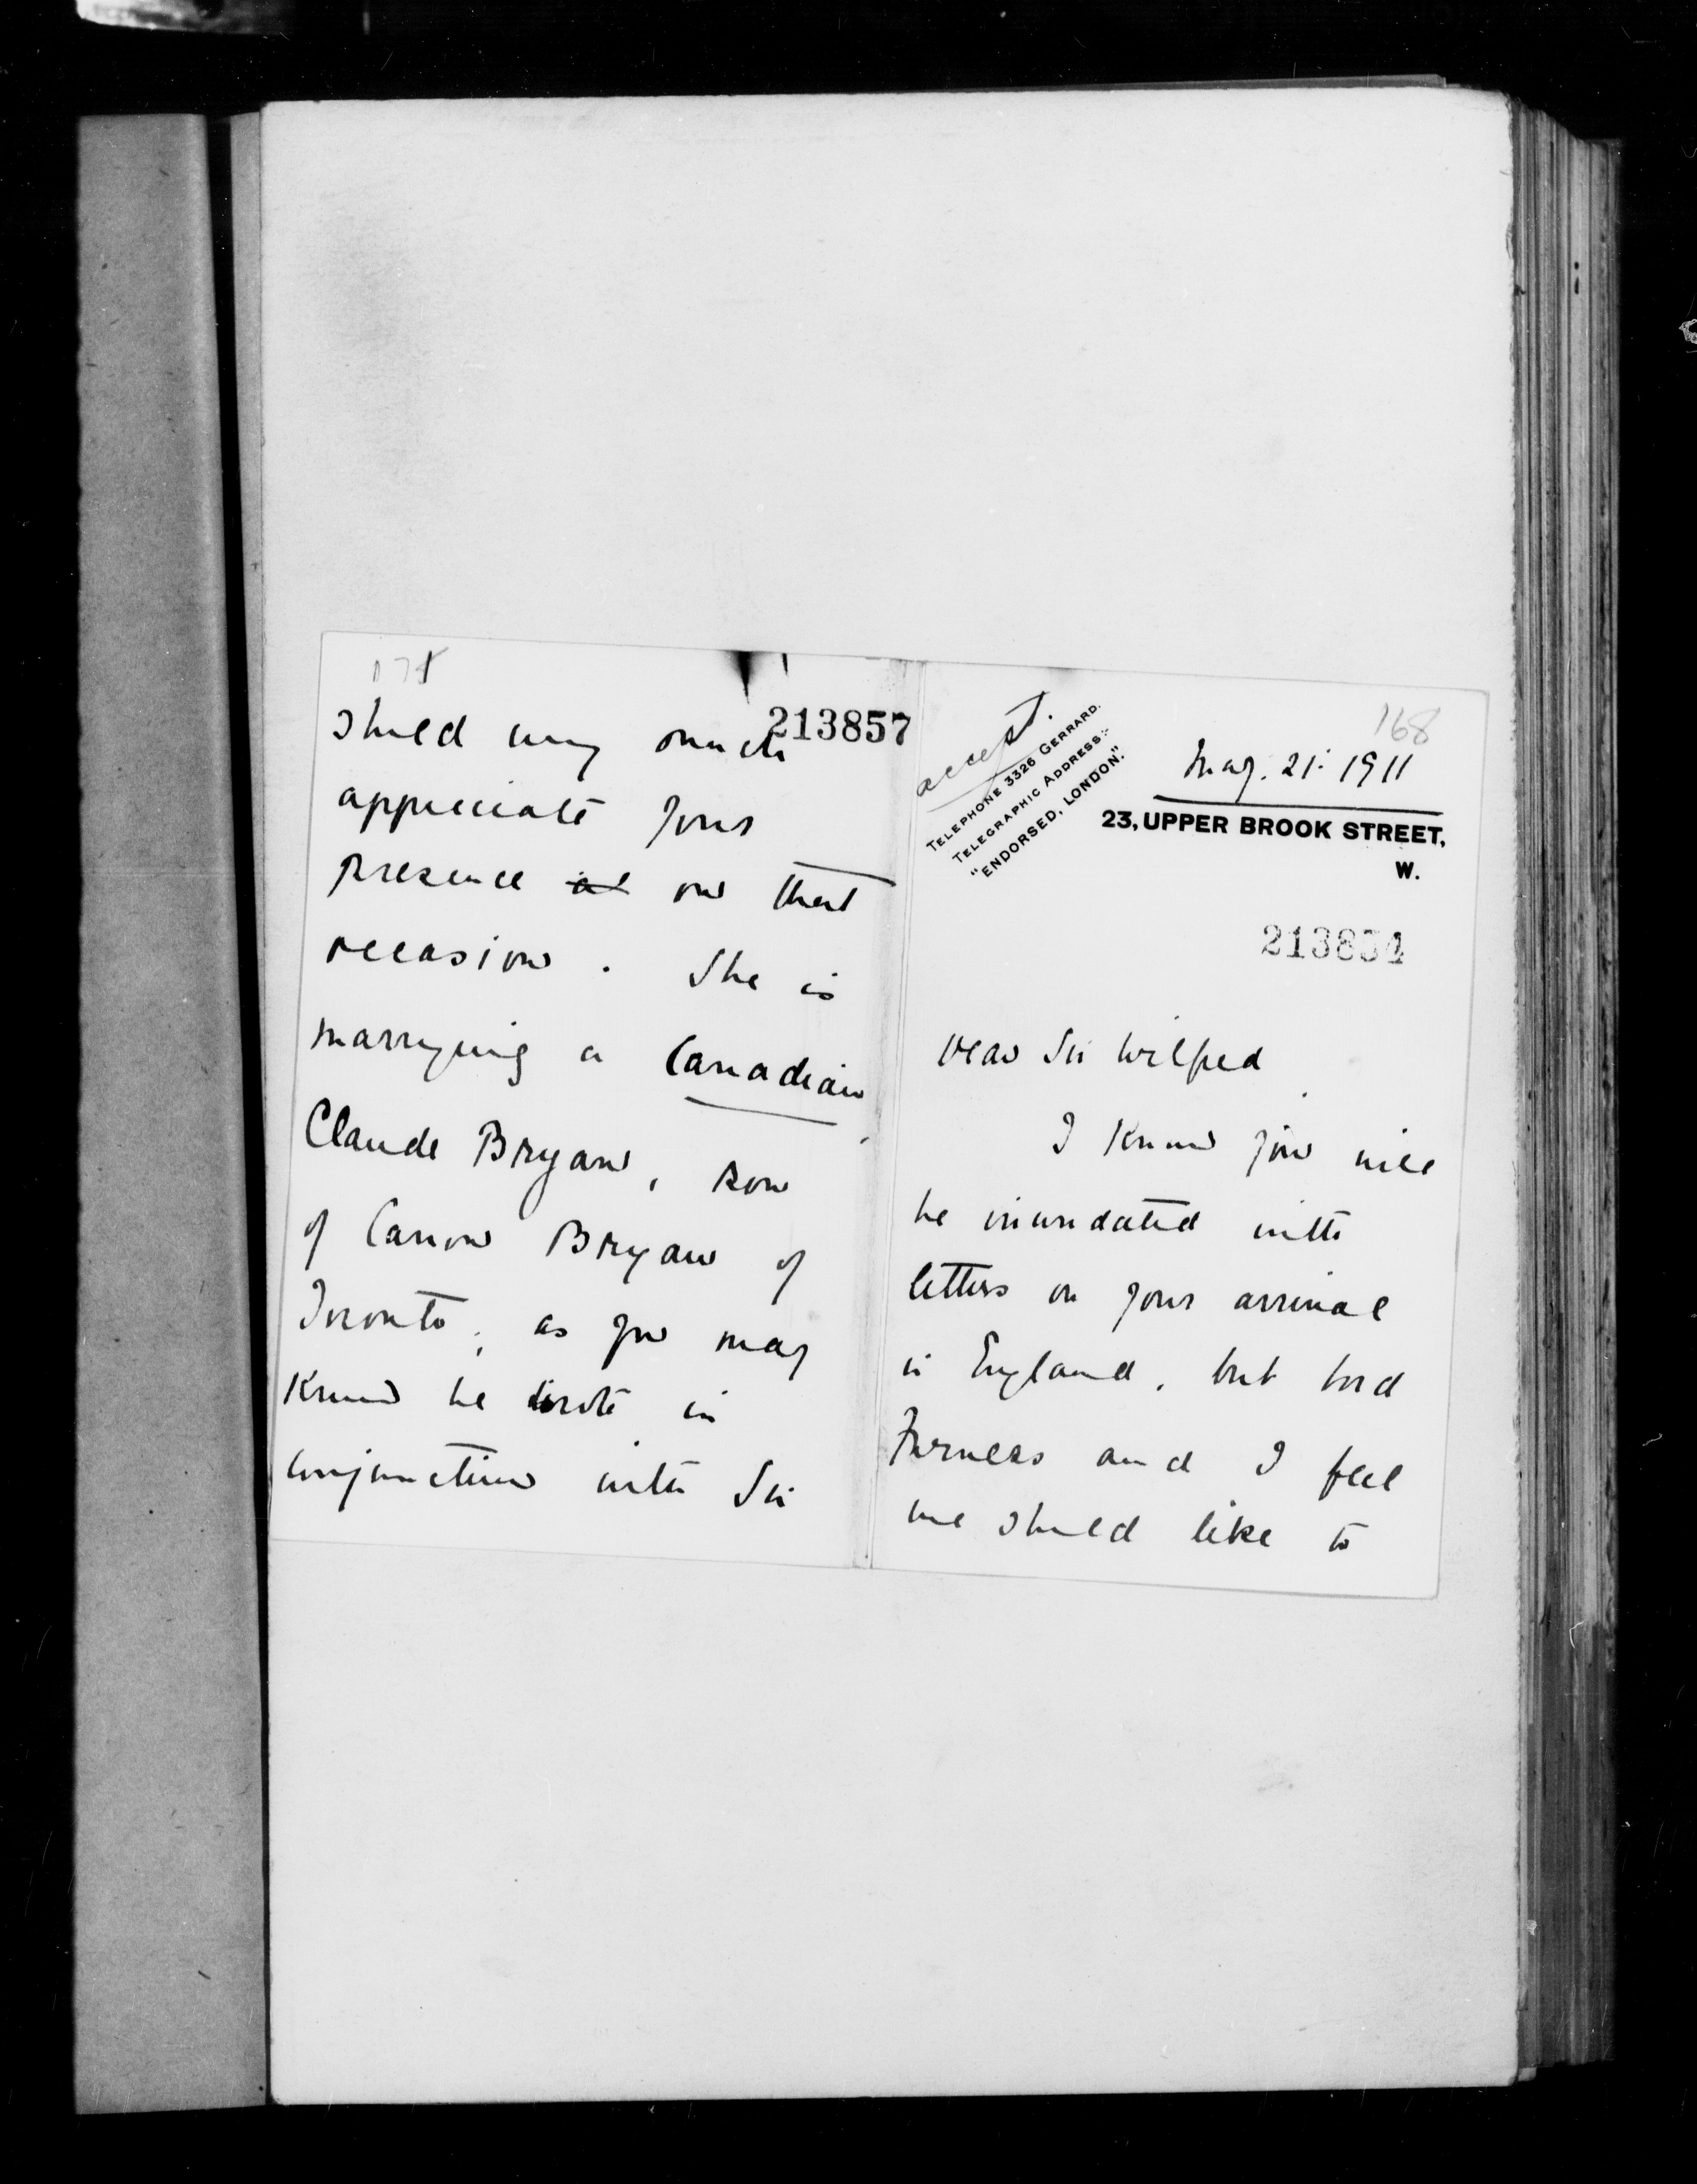 accept.
TELEPHONE 3326 GERRARD.
TELEGRAPHIC ADDRESS:-
"ENDORSED, LONDON."
168
May. 21: 1911
23, UPPER BROOK STREET,
W.
213854
Dear Sir Wilfred
I know you will
be inundated with
letters on your arrival
in England, but Lord
Furness and I feel
we should like to
213857
should very much
appreciate your
presence at on that
occasion. She is
marrying a Canadian,
Claude Bryan, son
of Canon Bryan of
Toronto, as you may
know he wrote in
conjunction with Sir